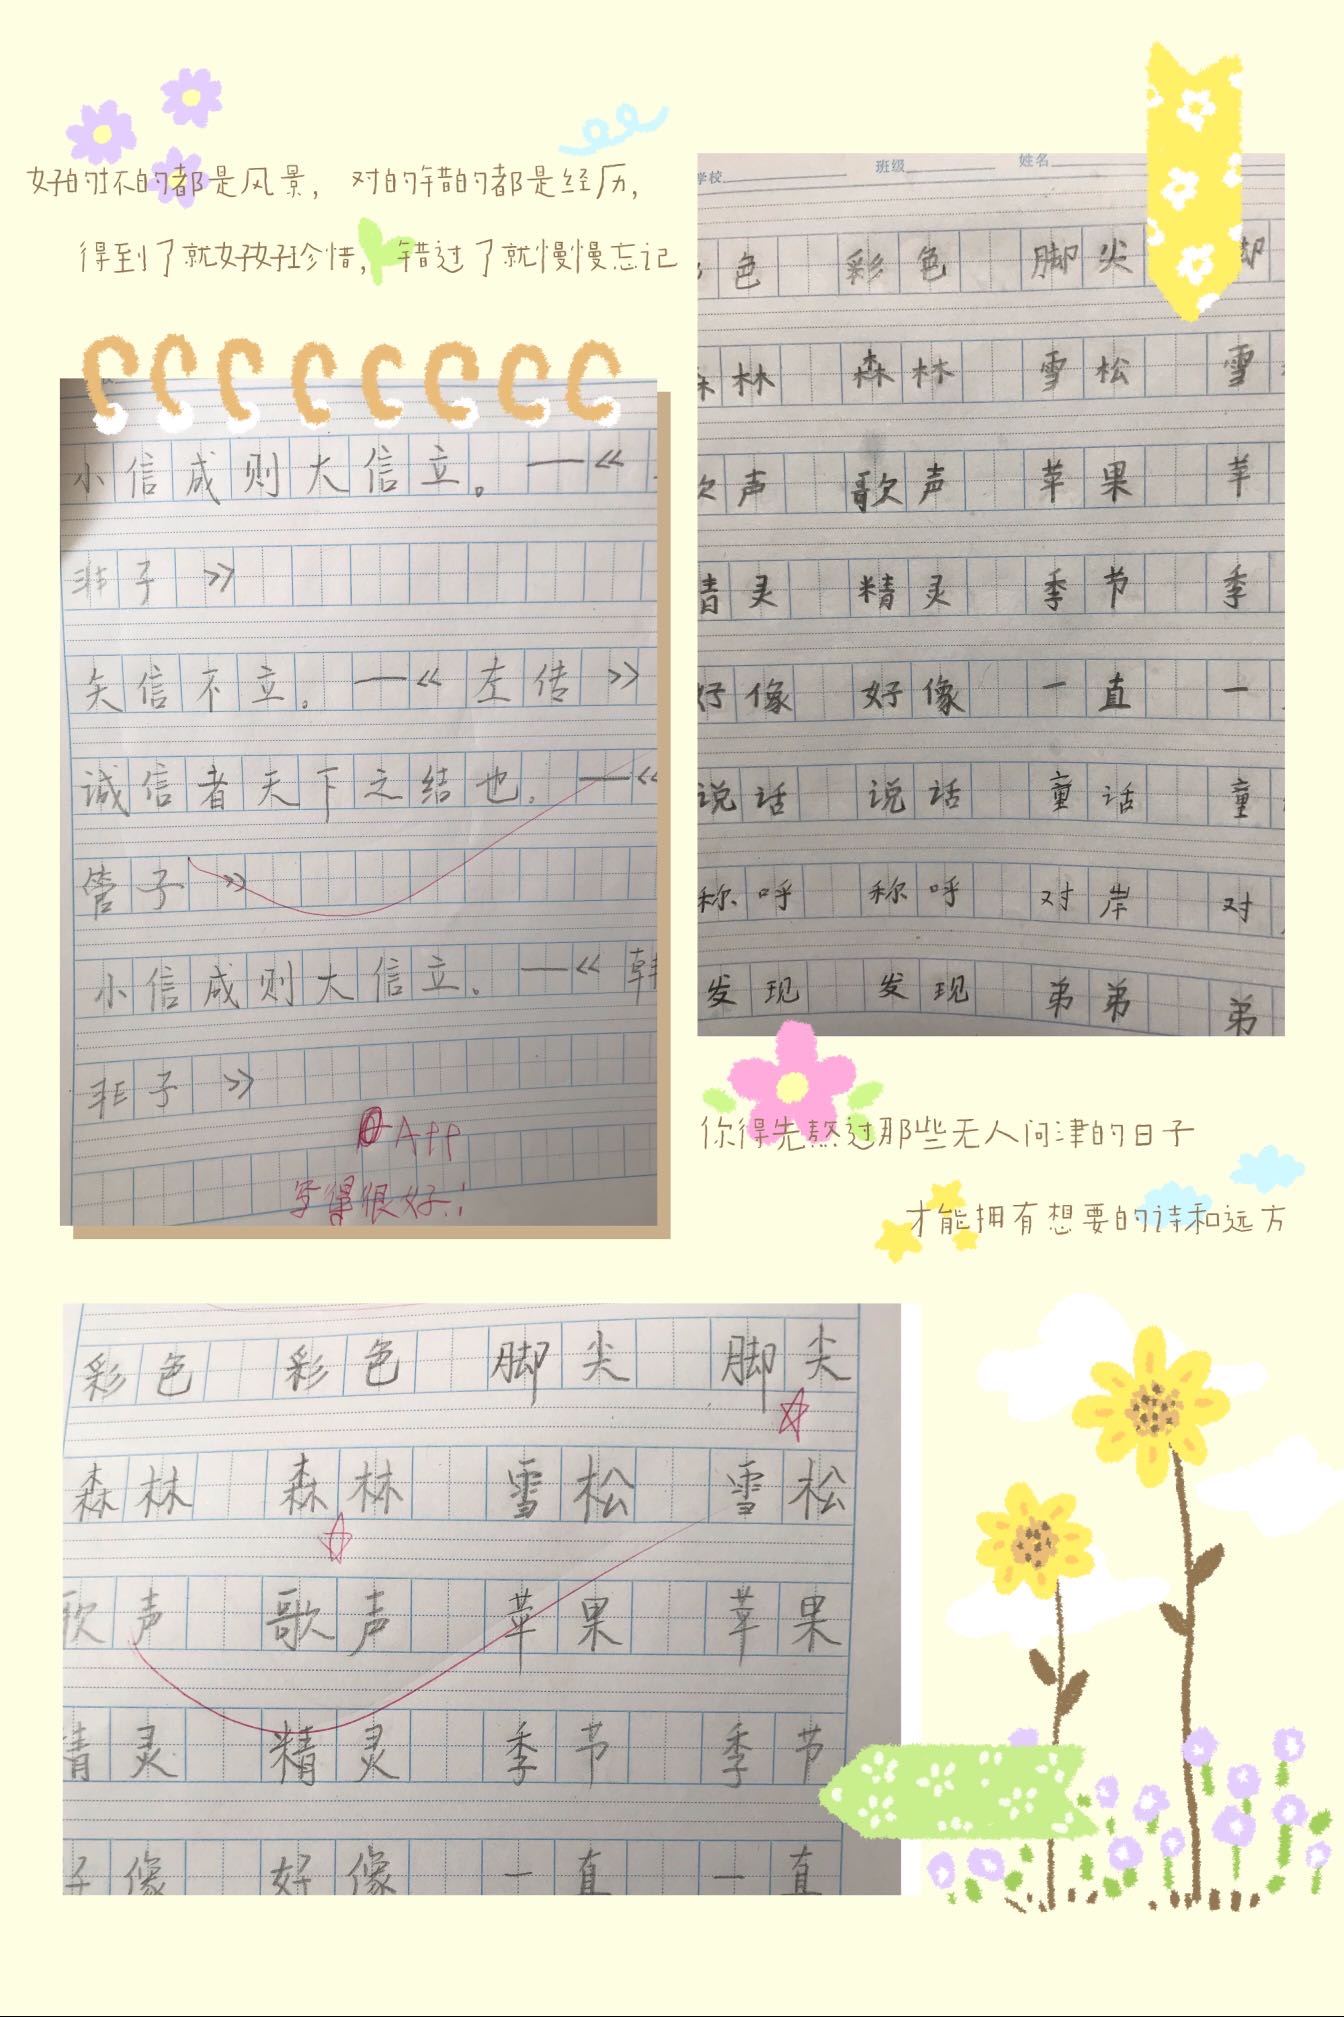 好的坏的都是风景， 对的错的都是经历，
得到了就好好珍惜，错过了就慢慢忘记
小信成则大信立。——《
非子》
矢信不立。——《左传》
诚信者天下之结也。——《
管子》
小信成则大信立。——《韩
非子》
App
写得很好！
学校 班级 姓名
色 彩色 脚尖
林 森林 雪松 雪
声 歌声 苹果 苹
灵 精灵 季节 季
好像 好像 一直 一
说话 说话 童话 童
称呼 称呼 对岸 对
发现 发现 弟弟 弟
你得先熬过那些无人问津的日子
才能拥有想要的诗和远方
彩色 彩色 脚尖 脚尖
森林 森林 雪松 雪松
歌声 歌声 苹果 苹果
精灵 精灵 季节 季节
好像 好像 一直 一直